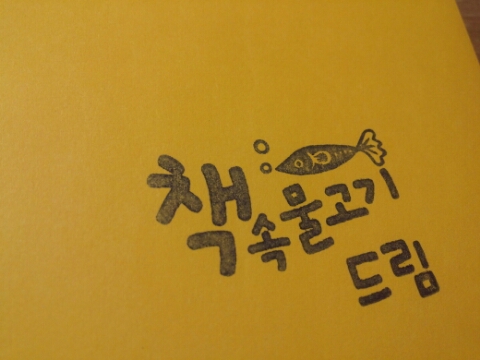 책속물고기
드림